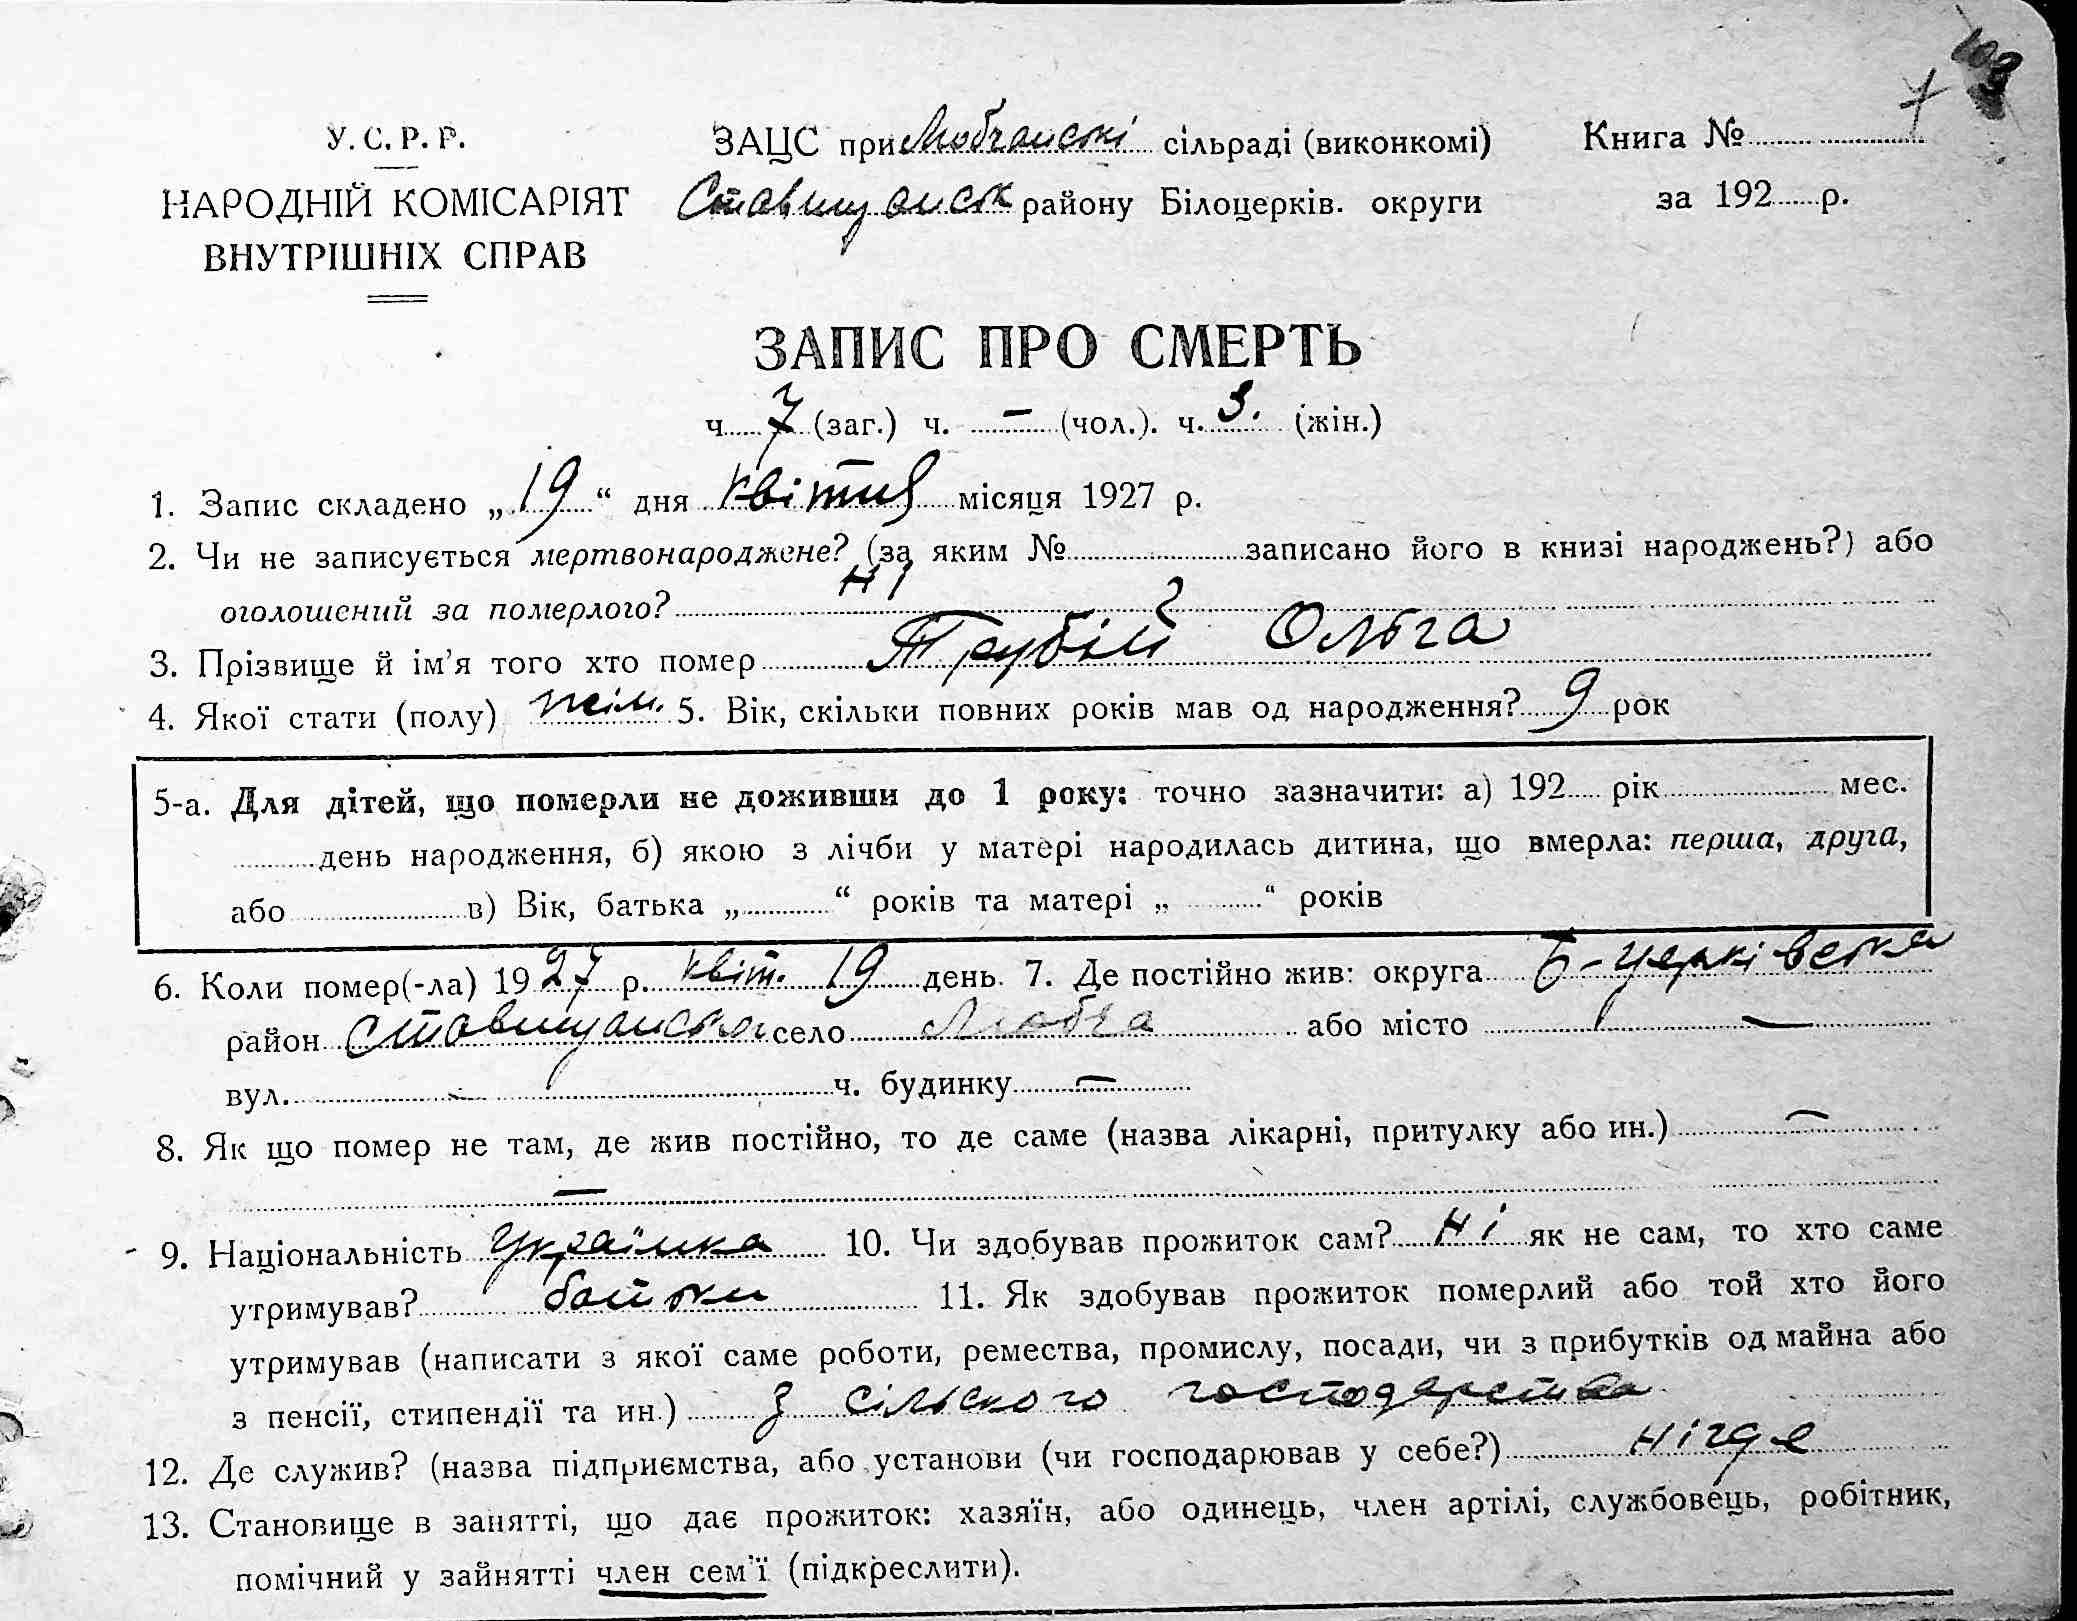 103
7
У. С. Р. Р.
НАРОДНІЙ КОМІСАРІЯТ
ВНУТРІШНІХ СПРАВ
ЗАЦС при Любчанські сільраді (виконкомі)
Ставищанськ району Білоцерків. округи
Книга №
за 192 р.
ЗАПИС ПРО СМЕРТЬ
ч. 7 (заг.) ч. — (чол.). ч. 3. (жін.)
1. Запис складено „19“ дня квітня місяця 1927 р.
2. Чи не записується мертвонароджене? (за яким № записано його в книзі народжень?) або
оголошений за померлого? ні
3. Прізвище й ім’я того хто помер Трубій Ольга
4. Якої стати (полу) жін. 5. Вік, скільки повних років мав од народження? 9 рок
5-а. Для дітей, що померли не доживши до 1 року: точно зазначити: а) 192 рік мес.
день народження, б) якою з лічби у матері народилась дитина, що вмерла: перша, друга,
або в) Вік, батька „ “ років та матері „ “ років
6. Коли помер(-ла) 1927 р. квіт. 19 день. 7. Де постійно жив: округа Б-Церківська
район Ставищанськ село Любча або місто —
вул. — ч. будинку —
8. Як що помер не там, де жив постійно, то де саме (назва лікарні, притулку або ин.) —
—
9. Національність Українка 10. Чи здобував прожиток сам? ні як не сам, то хто саме
утримував? батьки 11. Як здобував прожиток померлий або той хто його
утримував (написати з якої саме роботи, ремества, промислу, посади, чи з прибутків од майна або
з пенсії, стипендії та ин.) з сільского господарства
12. Де служив? (назва підприємства, або установи (чи господарював у себе?) нігде
13. Становище в занятті, що дає прожиток: хазяїн, або одинець, член артілі, службовець, робітник,
помічний у зайнятті член сем’ї (підкреслити).